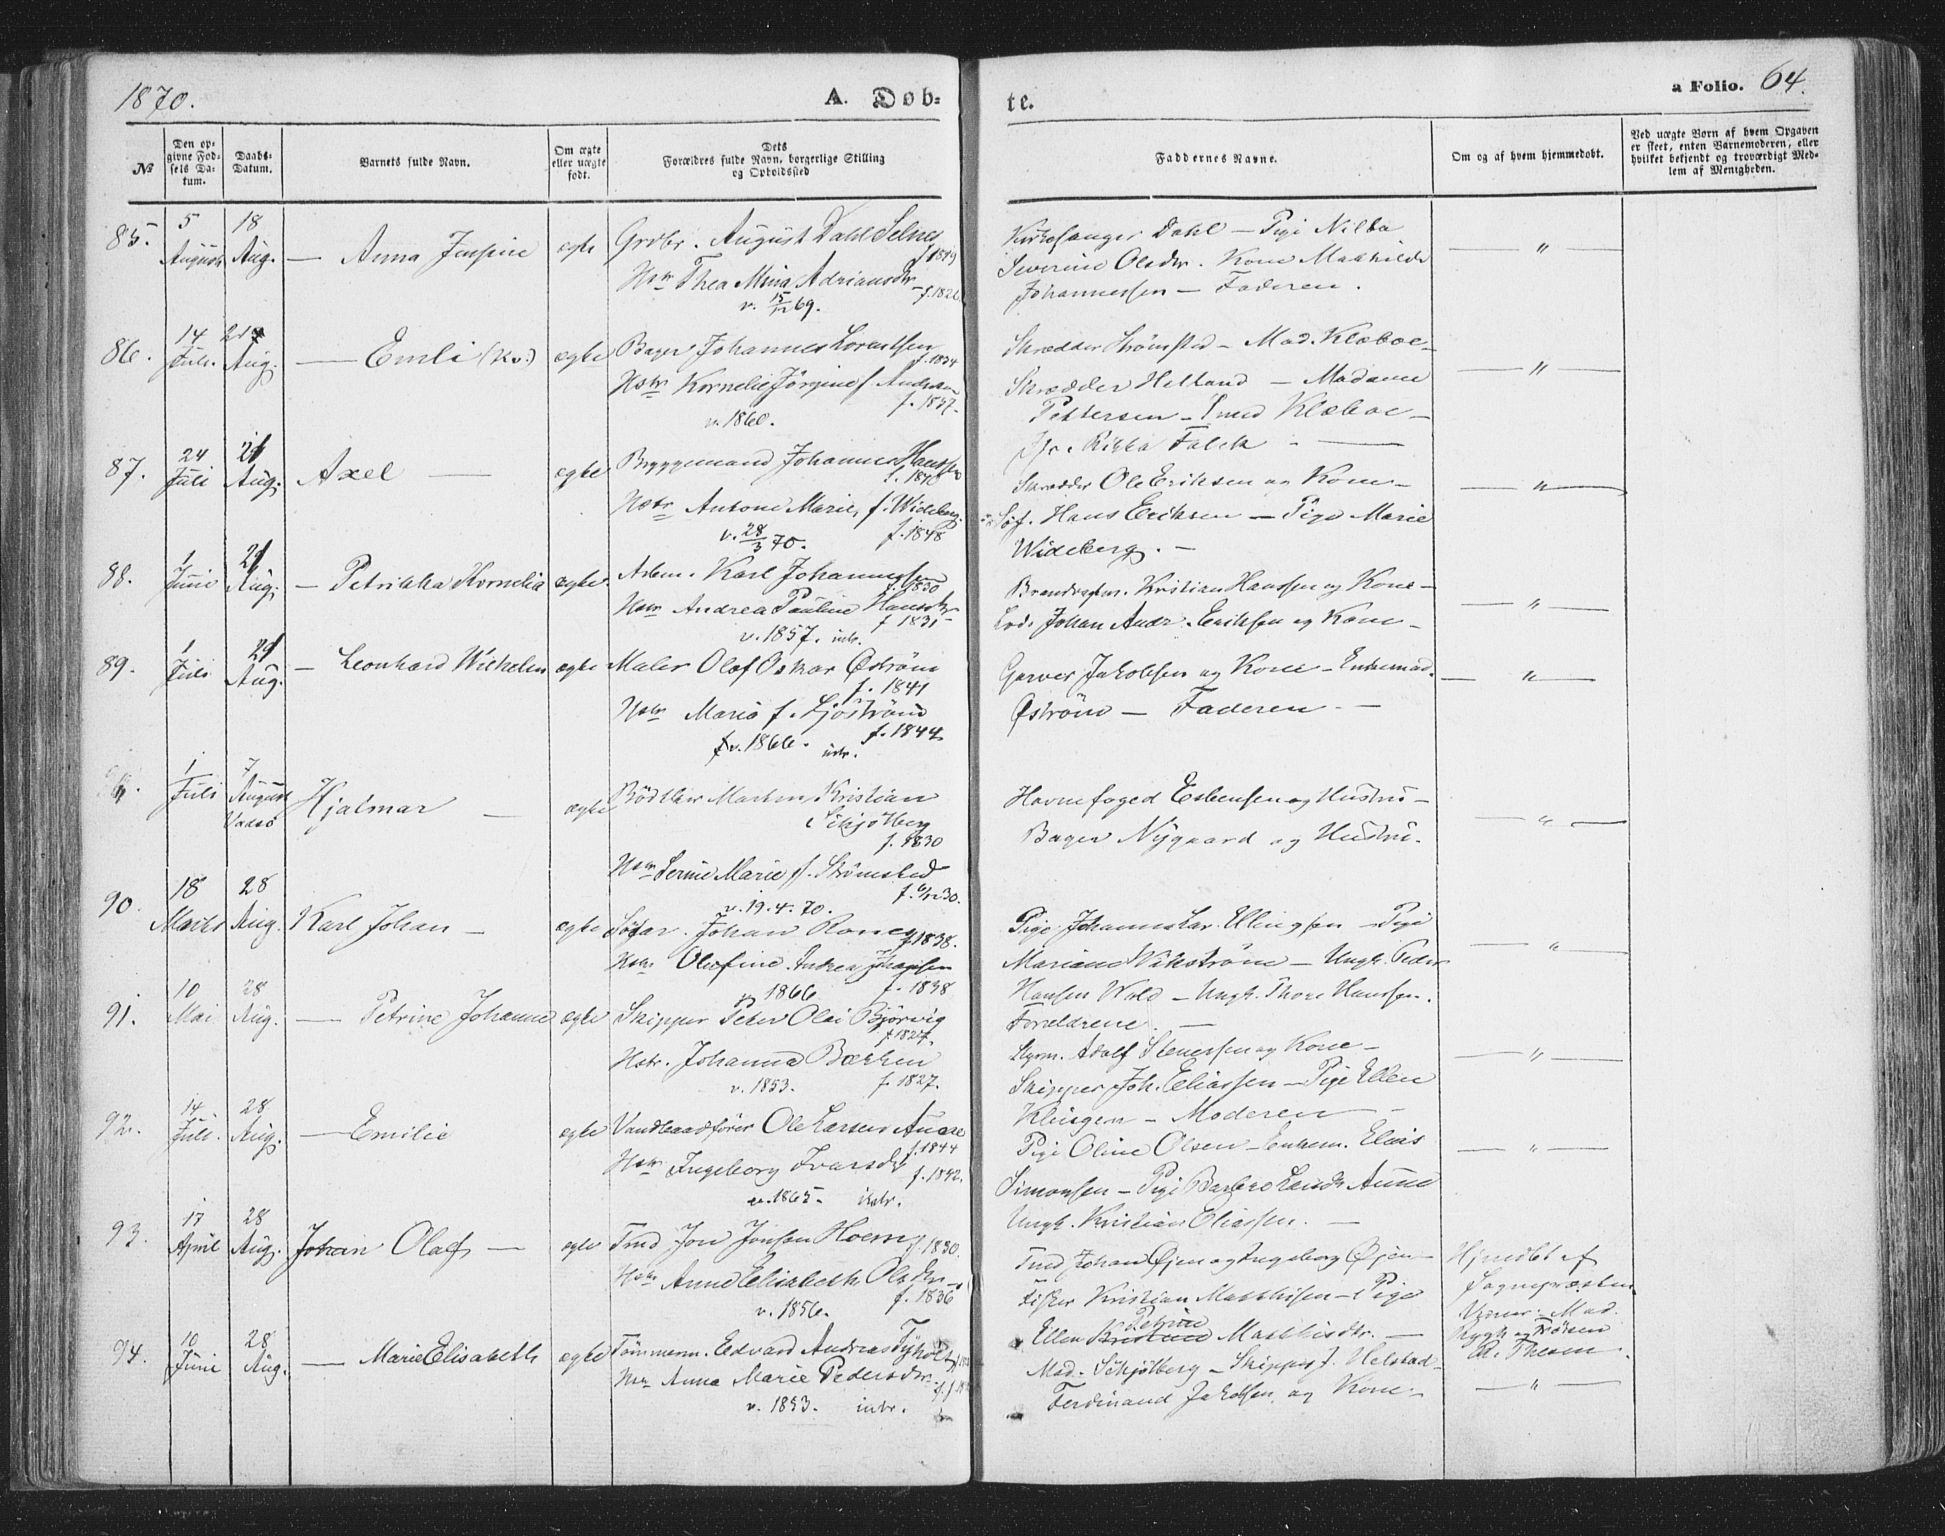 1870.
A. Døb-
te.
a Folio. 64.
№
Den op-
givne Fød-
sels Da-
tum.
Daabs-
Datum.
Barnets fulde Navn.
Om ægte
eller uægte
født.
Dets
Forældres fulde Navn, borgerlige Stilling
og Opholdssted
Faddernes Navne.
Om og af hvem hjemmedøbt.
Ved uægte Børn af hvem Opgaven
er skeet, enten Barnemoderen, eller
hvilket bekjendt og troværdigt Med-
lem af Menigheden.
85.
5
August
18
Aug.
— Anna Jensine
ægte
Grdbr. August Dahl Selnes
f. 1849
Hstr Thea Mina Adriansdtr
v. 15/12 69.
Kirkesanger Dahl — Pige Nilba
Severine Olsdtr. Kone Mathilde
Johannessen — Faderen.
— " —
86.
14
Juli.
21
Aug.
— Emli (Kv.)
ægte
Bager Johannes Lorentsen
f. 1834
Hstr Kornelie Jørgine f. Andersen
f. 1837.
v. 1860.
Skrædder Strømsted — Mad. Klæboe —
Skrædder Helland — Madame
Pettersen — Smed Klæboe —
Jfr. Rikka Falck —
— " —
87.
24
Juli
21
Aug.
Axel —
ægte
Bryggemand Johannes Hanssen
Hstr Antone Marie, f. Wideberg.
v. 28/3 70.
f. 1848
Skrædder Ole Eriksen og Kone —
Søf. Hans Eriksen — Pige Marie
Wideberg. —
— " —
88.
1
Juni
21
Aug.
— Petrikka Kornelia
ægte.
Arbm. Karl Johannessen
f. 1830
Hstr Andrea Pauline Hansdtr
f. 1831
v. 1857. intr.
Brandvagtm. Kristian Hanssen og Kone —
Lods Johan Andr. Eriksen og Kone —
— " —
89.
1
Juli
21
Aug.
— Leonhard Wilhelm
ægte
Maler Olaf Oskar Østrøm
f. 1841
Hstr Maria f. Sjöström
f. 1844
v. 1866. intr.
Garver Jakobsen og Kone — Enkemad.
Østrøm — Faderen. —
— " —
1
Juli
7
August
Vadsø
Hjalmar —
ægte
Bødker Marten Kristian
Schjølberg
f. 1830
Hstr Serine Marie f. Strømsted
v. 19.4.70.
Havnefoged Esbensen og Hustru —
Bager Nygaard og Hustru.
— " —
90.
18
Marts
28
Aug.
Karl Johan —
ægte
Søfar. Johan Roney
f. 1838.
Hstr Olefine Andrea Johansen
f. 1838
v. 1866
Pige Johanna Lar. Ellingsen — Pige
Mariane Vikstrøm — Ungk. Peder
Hansen Wold — Ungk. Thore Hanssen.
Forældrene. —
— " —
91.
10
Mai
28
Aug.
— Petrine Johanne
ægte
Skipper Peter Olai Bjørvig
f. 1827.
Hstr. Johanna Bækken
v. 1853.
f. 1827.
Styrm. Adolf Stenersen og Kone —
Skipper Joh. Eliassen — Pige Ellen
Klingen — Moderen —
— " —
92.
14
Juli.
28
Aug.
— Emilie
ægte
Vandbaadfører Ole Larsen Aune
f. 1844
Hstr Ingeborg Ivarsdtr
f. 1842.
v. 1865. intr.
Pige Oline Olsen — Enkem. Elias
Simonsen — Pige Barbro Larsdtr Aune
Ungk. Kristian Eliassen. —
— " —
93.
17
April
28
Aug.
Johan Olaf —
ægte
Tmd Jon Jonsen Hoem
f. 1830.
Hstr Anne Elisabeth Olsdtr
f. 1836
v. 1856.
Tmd Johan Øjen og Ingeborg Øjen —
Fisker Kristian Matthisen — Pige
Petrine
Ellen Kristine Matthisdtr. —
Hjmdbt af
Sognepræsten
94.
10
Juni
28
Aug.
— Marie Elisabeth
ægte
Tømmerm. Edvard Andreas Tyholt
Hstr Anna Marie Pedersdtr.
v. 1853. intr.
Mad. Schjølberg — Skipper J. Helstad —
Ferdinand Jakobsen og Kone.
— " —